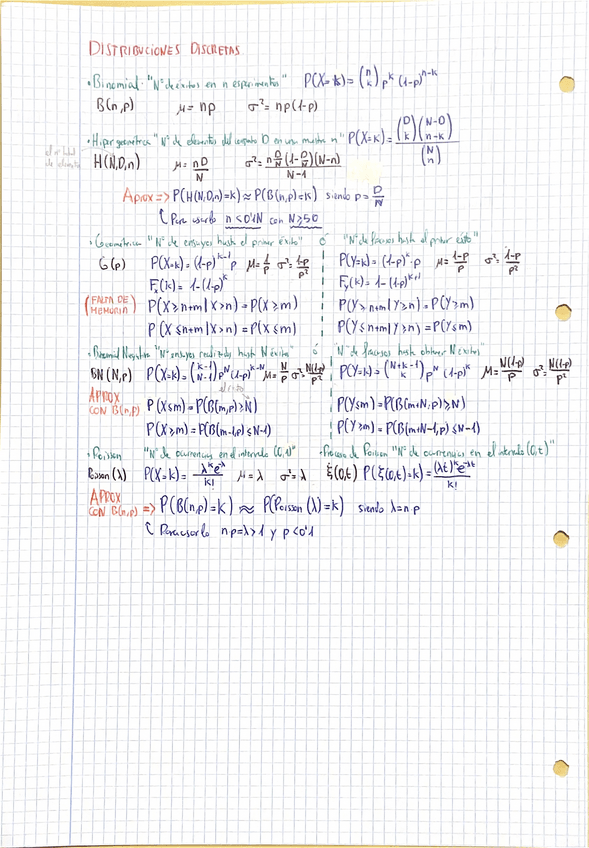 DISTRIBUCIONES DISCRETAS
• Binomial "Nº de éxitos en n experimentos" P(X=k) = (n k) p^k (1-p)^(n-k)
B(n,p) μ = np σ² = np(1-p)
• Hipergeométrica "Nº de elementos del conjunto D en una muestra n" P(X=k) = (D k)(N-D n-k) / (N n)
H(N,D,n) μ = nD/N σ² = n D/N (1-D/N)(N-n) / N-1
Aprox => P(H(N,D,n)=k) ≈ P(B(n,p)=k) siendo p = D/N
Para usarlo n<0'1N con N≥50
• Geométrica "Nº de ensayos hasta el primer éxito" ó "Nº de fracasos hasta el primer éxito"
G(p) P(X=k) = (1-p)^(k-1) p μ = 1/p σ² = 1-p/p² P(Y=k) = (1-p)^k · p μ = 1-p/p σ² = 1-p/p²
F_x(k) = 1-(1-p)^k F_y(k) = 1-(1-p)^(k+1)
(FALTA DE MEMORIA) P(X≥n+m | X>n) = P(X≥m) P(Y≥n+m | Y≥n) = P(Y≥m)
P(X≤n+m | X>n) = P(X≤m) P(Y≤n+m | Y≥n) = P(Y≤m)
• Binomial Negativa "Nº ensayos realizados hasta N éxitos" ó "Nº de fracasos hasta obtener N éxitos"
BN(N,p) P(X=k) = (k-1 N-1) p^N (1-p)^(k-N) μ = N/p σ² = N(1-p)/p² P(Y=k) = (N+k-1 k) p^N (1-p)^k μ = N(1-p)/p σ² = N(1-p)/p²
APROX CON B(n,p) P(X≤m) = P(B(m,p)≥N) P(Y≤m) = P(B(m+N,p)≥N)
P(X≥m) = P(B(m-1,p)≤N-1) P(Y≥m) = P(B(m+N-1,p)≤N-1)
• Poisson "Nº de ocurrencias en el intervalo (0,1)" • Proceso de Poisson "Nº de ocurrencias en el intervalo (0,t)"
Poisson(λ) P(X=k) = λ^k e^-λ / k! μ = λ σ² = λ ξ(0,t) P(ξ(0,t)=k) = (λt)^k e^-λt / k!
APROX CON B(n,p) => P(B(n,p)=k) ≈ P(Poisson(λ)=k) siendo λ=np
Para usarlo np=λ>1 y p<0'1